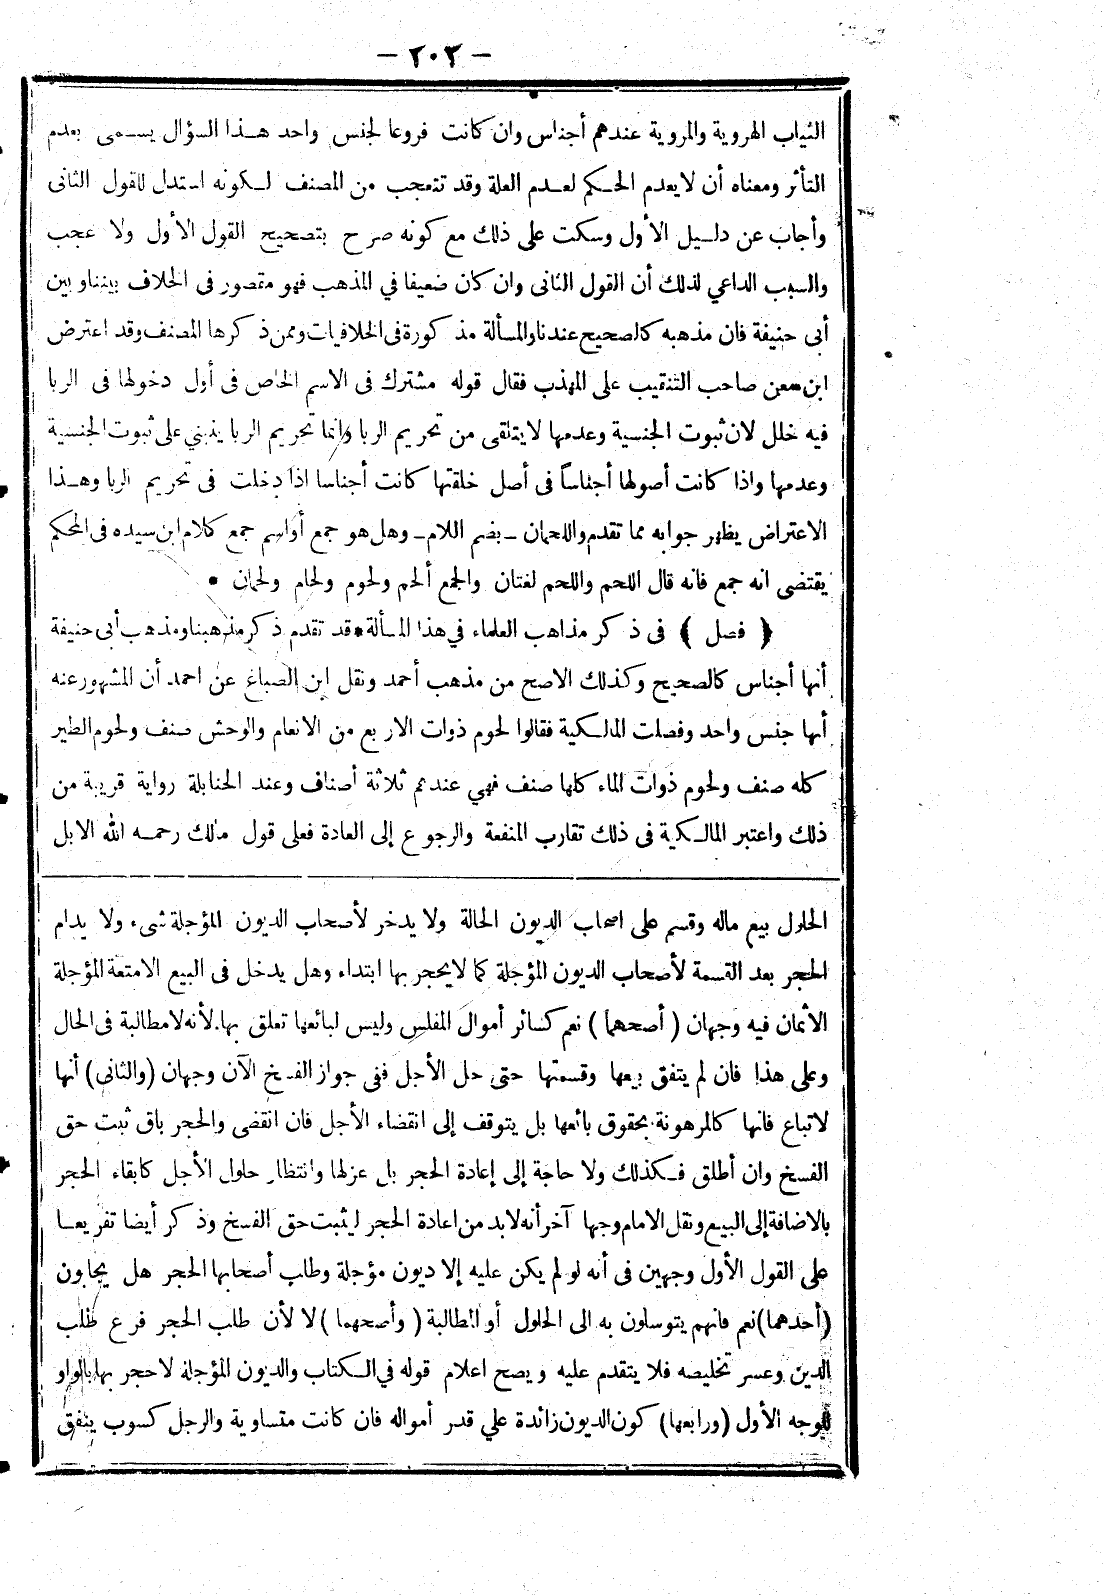 - ٢٠٣ -
الثياب الهروية والمروية عندهم أجناس وان كانت فروعا لجنس واحد هذا السؤال يسمى بعدم
التأثر ومعناه أن لا يعدم الحكم لعدم العلة وقد تتعجب من المصنف لكونه استدل للقول الثانى
وأجاب عن دليل الأول وسكت على ذلك مع كونه صرح بتصحيح القول الأول ولا عجب
والسبب الداعي لذلك أن القول الثانى وان كان ضعيفا في المذهب فهو مقصور فى الخلاف بيننا وبين
أبى حنيفة فان مذهبه كالصحيح عندنا والمسألة مذكورة فى الخلافيات وممن ذكرها المصنف وقد اعترض
ابن معن صاحب التنقيب على المهذب فقال قوله مشترك فى الاسم الخاص فى أول دخولها فى الربا
فيه خلل لان ثبوت الجنسية وعدمها لا يتلقى من تحريم الربا وانما تحريم الربا يذبني على ثبوت الجنسية
وعدمها واذا كانت أصولها أجناساً فى أصل خلقتها كانت أجناسا اذا دخلت فى تحريم الربا وهذا
الاعتراض يظهر جوابه مما تقدم واللحمان - بضم اللام - وهل هو جمع أو اسم جمع كلام ابن سيده فى المحكم
يقتضى انه جمع فانه قال اللحم واللحم لغتان والجمع ألحم ولحوم ولحام ولحمان •
﴿ فصل ﴾ فى ذكر مذاهب العلماء في هذا المسألة • قد تقدم ذكر مذهبنا ومذهب أبى حنيفة
أنها أجناس كالصحيح وكذلك الاصح من مذهب أحمد ونقل ابن الصباغ عن احمد أن المشهور عنه
أنها جنس واحد وفصلت المالكية فقالوا لحوم ذوات الاربع من الانعام والوحش صنف ولحوم الطير
كله صنف ولحوم ذوات الماء كلها صنف فهي عندهم ثلاثة أصناف وعند الحنابلة رواية قريبة من
ذلك واعتبر المالكية فى ذلك تقارب المنفعة والرجوع إلى العادة فعلى قول مالك رحمه الله الابل
الحلول بيع ماله وقسم على اصحاب الديون الحالة ولا يدخر لأصحاب الديون المؤجلة شىء ولا يدام
الحجر بعد القسمة لأصحاب الديون المؤجلة كما لا يحجر بها ابتداء وهل يدخل فى البيع الامتعة المؤجلة
الأثمان فيه وجهان ( أصحهما ) نعم كسائر أموال المفلس وليس لبائعها تعلق بها لأنه لا مطالبة فى الحال
وعلى هذا فان لم يتفق بيعها وقسمتها حتى حل الأجل ففى جواز الفسخ الآن وجهان (والثانى) أنها
لا تباع فانها كالمرهونة بحقوق بائعها بل يتوقف إلى انقضاء الأجل فان انقضى والحجر باق ثبت حق
الفسخ وان أطلق فكذلك ولا حاجة إلى إعادة الحجر بل عزلها وانتظار حلول الأجل كابقاء الحجر
بالاضافة إلى البيع ونقل الامام وجها آخر أنه لابد من اعادة الحجر ليثبت حق الفسخ وذكر أيضا تفريعا
على القول الأول وجهين فى أنه لو لم يكن عليه إلا ديون مؤجلة وطلب أصحابها الحجر هل يجابون
(أحدهما) نعم فانهم يتوسلون به الى الحلول أو المطالبة ( وأصحهما ) لا لأن طلب الحجر فرع طلب
الدين وعسر تخليصه فلا يتقدم عليه ويصح اعلام قوله في الكتاب والديون المؤجلة لا حجر بها بالواو
للوجه الأول (ورابعها) كون الديون زائدة علي قدر أمواله فان كانت متساوية والرجل كسوب ينفق